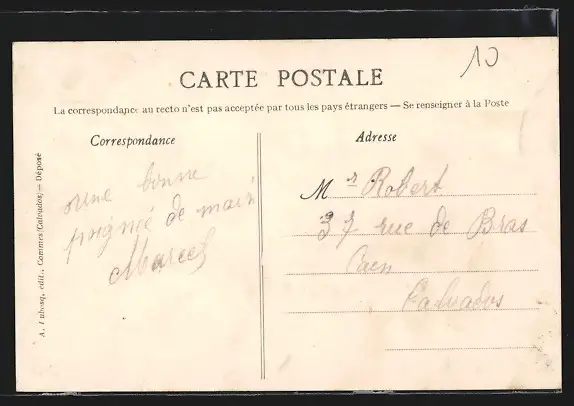 10
CARTE POSTALE
La correspondance au recto n'est pas acceptée par tous les pays étrangers — Se renseigner à la Poste
Correspondance
une bonne
poignée de main
Marcel
Adresse
M r Robert
37 rue de Bras
Caen
Calvados
A. Dubosq, édit., Commes (Calvados) — Déposé